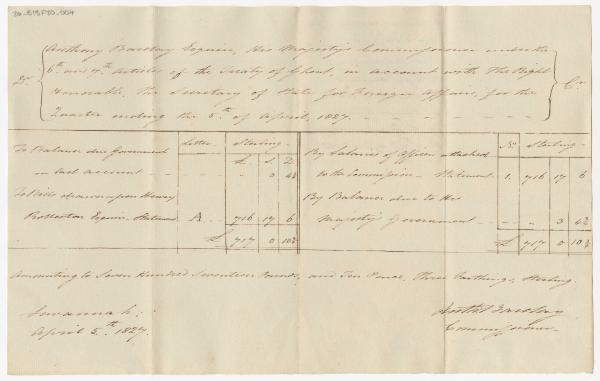 Anthony Barclay Esquire, His Majesty's Commissioner under the
Dr. 6th and 7th Articles of the Treaty of Ghent, in account with The Right Cr.
Honorable, The Secretary of State for Foreign Affairs, for the
Quarter ending the 5th of April, 1827.
Letter Sterling
£ S. D
To Balance due Government
on last account 0 4¾
To Bills drawn upon Henry
Rolleston Esquire - Statement A. 716 17 6
£ 717 0 10¾
No. Sterling
By Salaries of Officers attached
to the Commission - Statement 1. 716 17 6
By Balance due to His
Majesty's Government 3 4¾
£ 717 0 10¾
Amounting to Seven Hundred Seventeen Pounds, and Ten Pence, Three Farthings, Sterling.
Savannah:
April 5th 1827.
Anth. Barclay
Commissioner